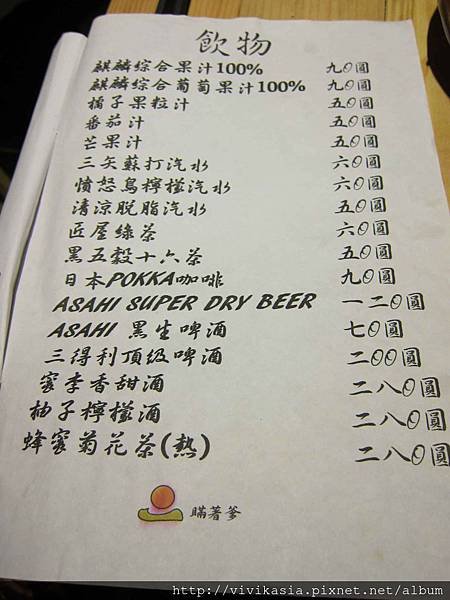 飲物
麒麟綜合果汁100% 九0圓
麒麟綜合葡萄果汁100% 九0圓
橘子果粒汁 五0圓
番茄汁 五0圓
芒果汁 五0圓
三矢蘇打汽水 六0圓
憤怒鳥檸檬汽水 六0圓
清涼脫脂汽水 五0圓
匠屋綠茶 六0圓
黑五穀十六茶 五0圓
日本POKKA咖啡 九0圓
ASAHI SUPER DRY BEER 一二0圓
ASAHI 黑生啤酒 七0圓
三得利頂級啤酒 二00圓
蜜李香甜酒 二八0圓
柚子檸檬酒 二八0圓
蜂蜜菊花茶(熱) 二八0圓
瞞著爹
http://vivikasia.pixnet.net/album